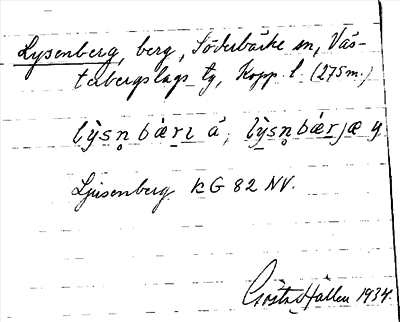 Lysenberg, berg, Söderbärke sn, Väs-
terbergslags tg, Kopp. l. (275m.)
lỳsn̥ bǽrɩ ä, lỳsn̥ bǽrjæ y
Ljusenberg KG 82 NV.
Gösta Hallén 1934.